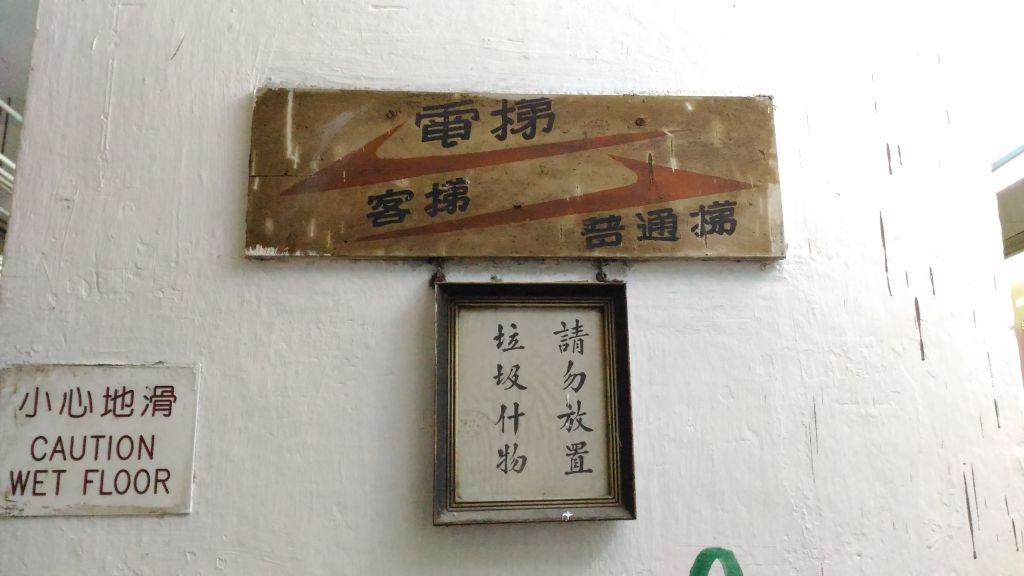 電梯
客梯
普通梯
請勿放置
垃圾什物
小心地滑
CAUTION
WET FLOOR